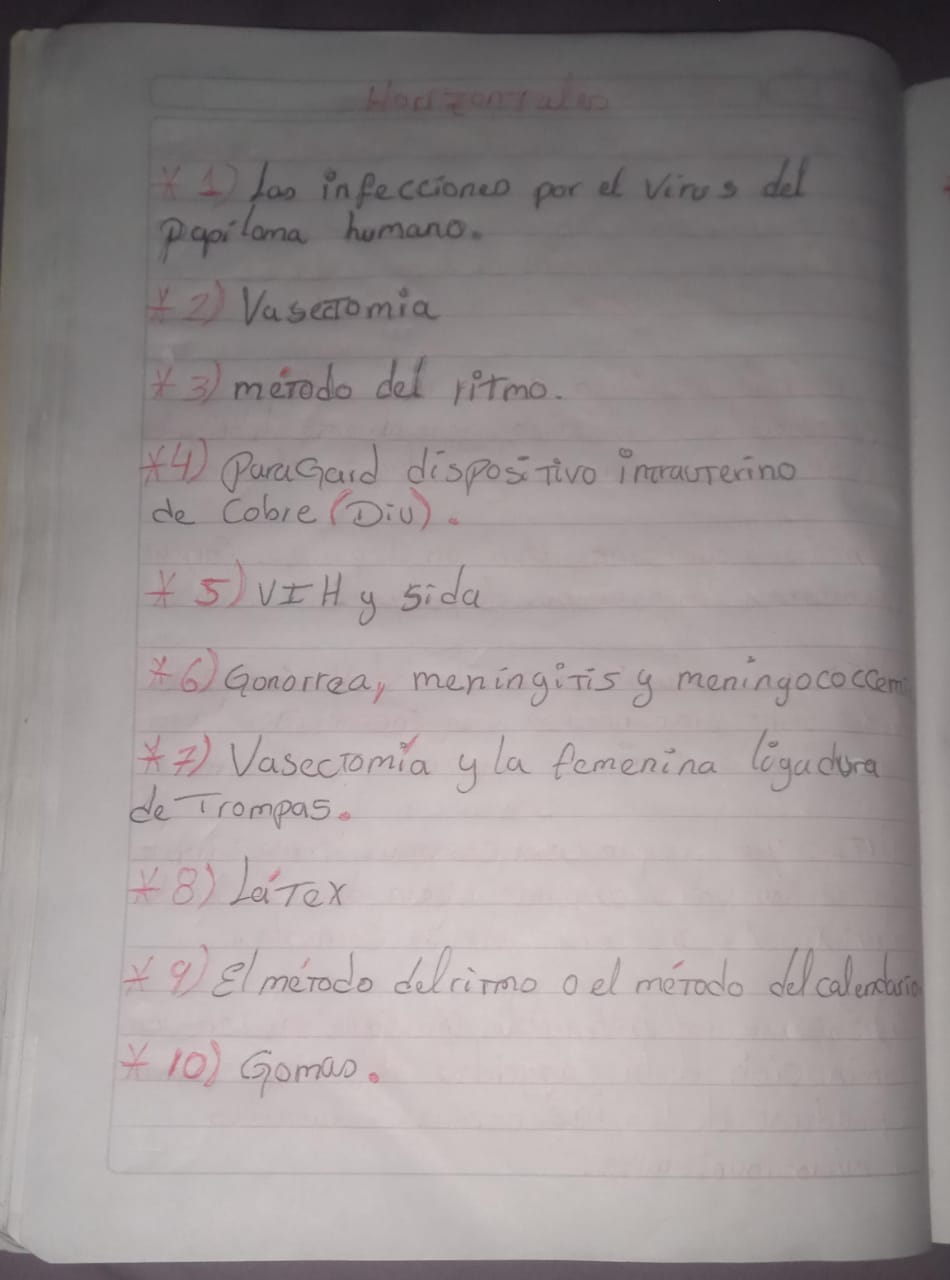 Horizontales
* 1) Las infecciones por el Virus del
Papiloma humano.
* 2) Vasectomia
* 3) método del ritmo.
* 4) ParaGard dispositivo intrauterino
de Cobre (Diu).
* 5) VIH y sida
* 6) Gonorrea, meningitis y meningococcemi
* 7) Vasectomía y la femenina ligadura
de Trompas.
* 8) LáTex
* 9) El método del ritmo o el método del calendario
* 10) Gomas.